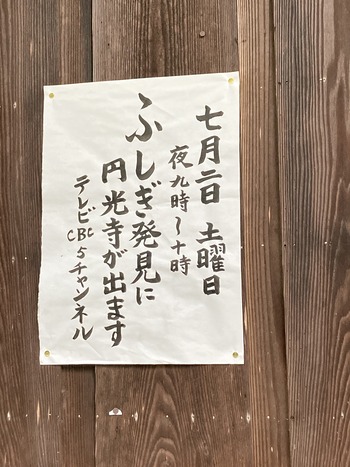 七月二日 土曜日
夜九時～十時
ふしぎ発見に
円光寺が出ます
テレビCBC5チャンネル